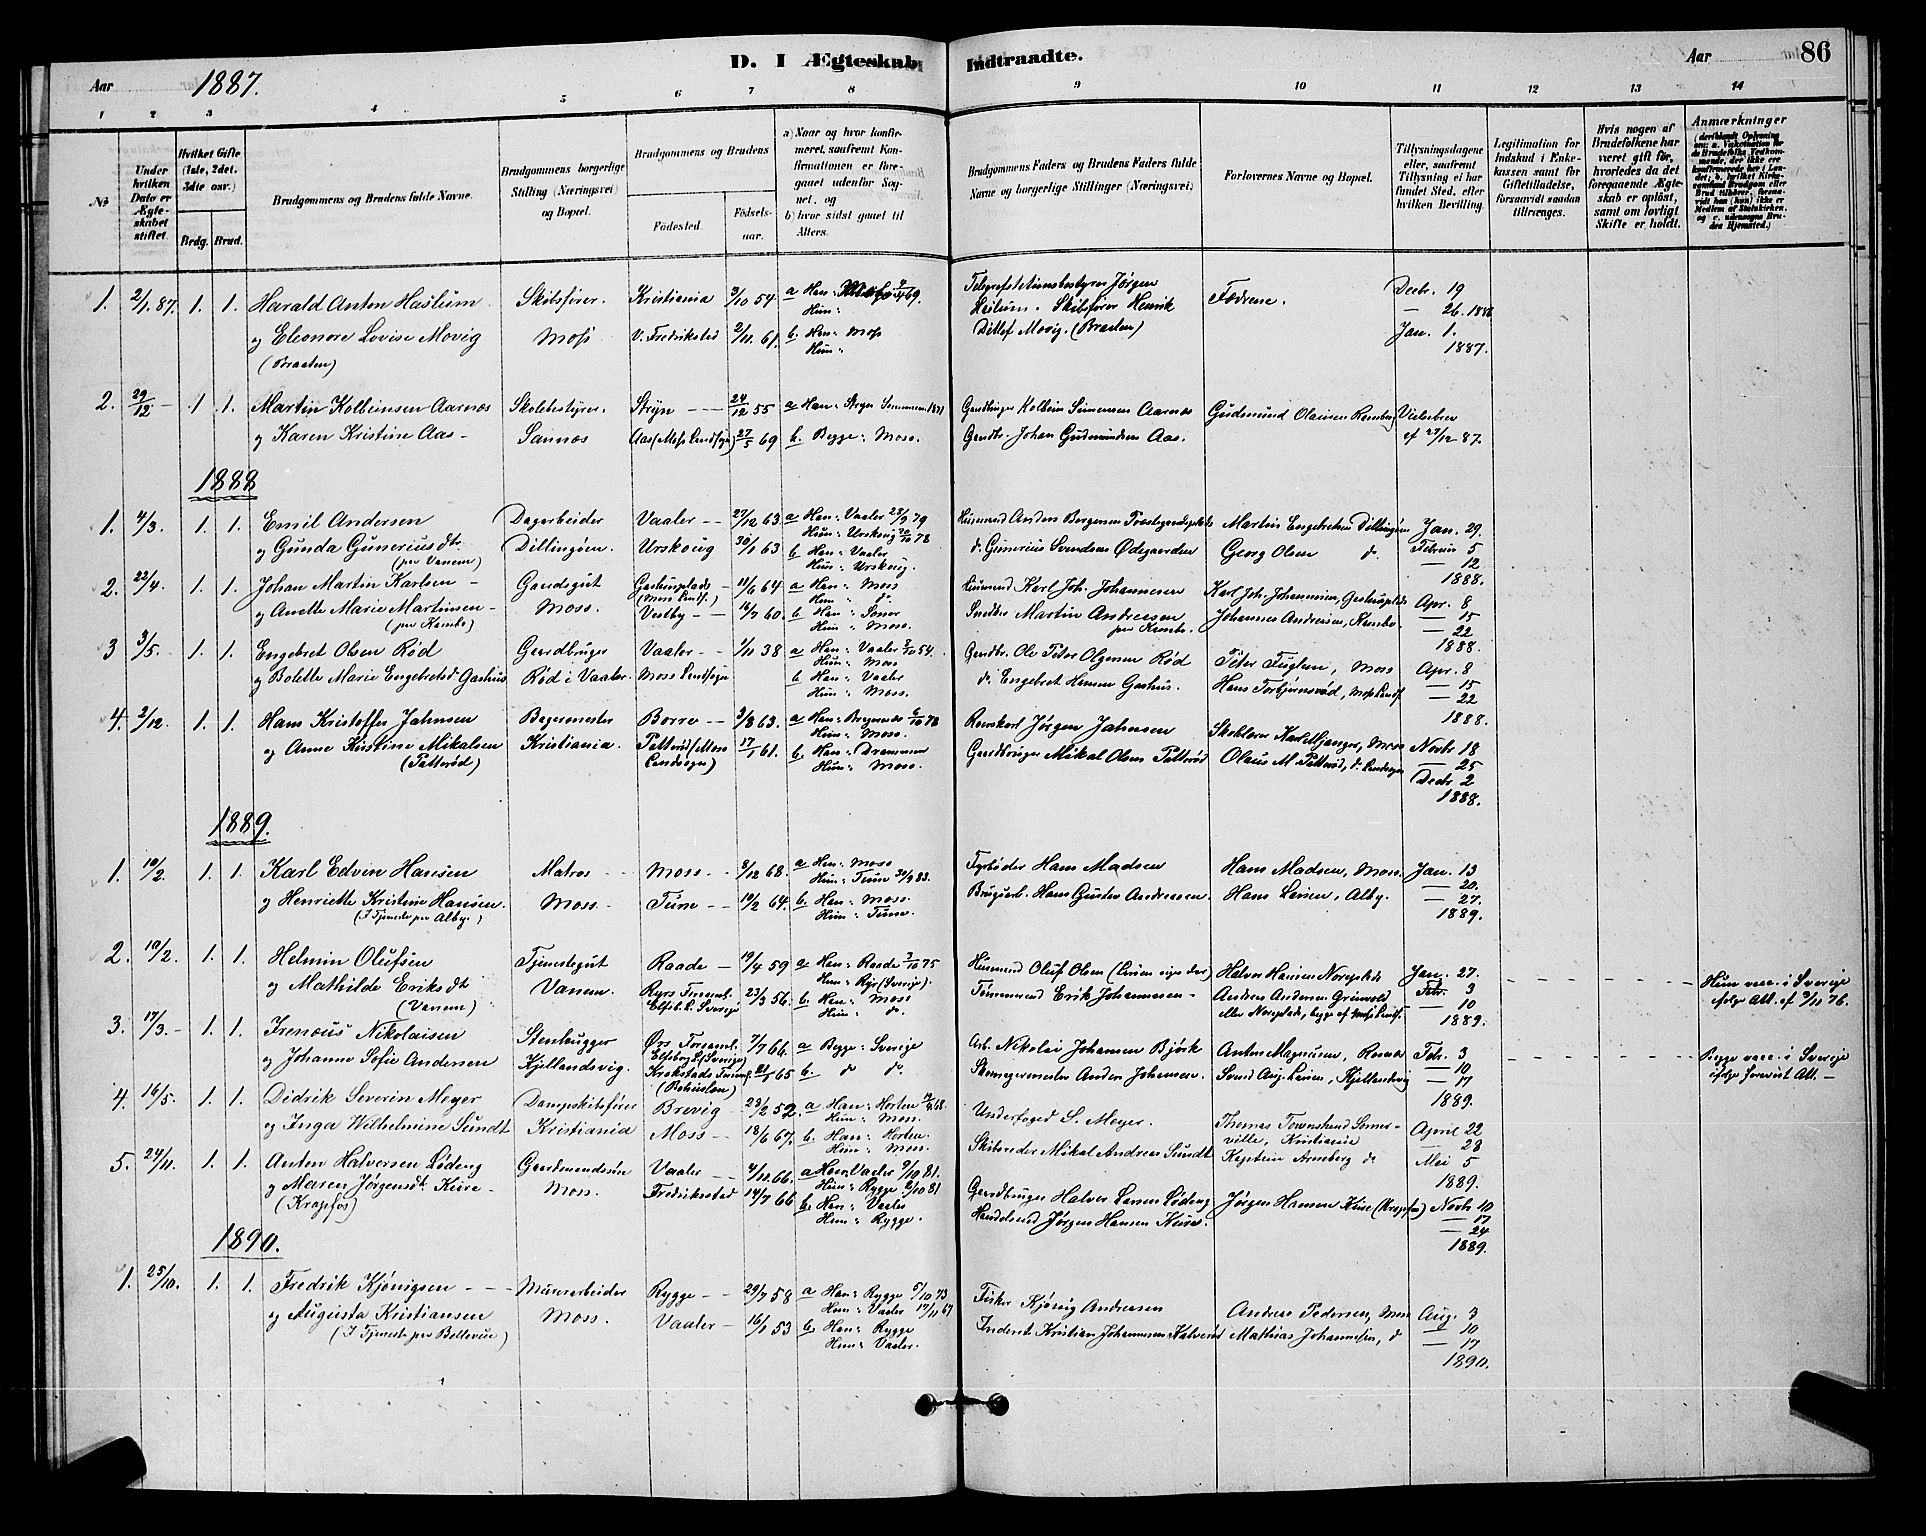 D. I Ægteskab Indtraadte.
Aar 1887.
Aar
86
1 2 3 4 5 6 7 8 9 10 11 12 13 14
No
Under hvilken Dato er Ægteskabet stiftet.
Hvilket Gifte (1ste, 2det, 3die osv.)
Brdg. Brud.
Brudgommens og Brudens fulde Navne.
Brudgommens borgerlige Stilling (Næringsvei) og Bopæl.
Brudgommens og Brudens
Fødested. Fødselsaar.
a) Naar og hvor konfirmeret, saafremt Konfirmationen er foregaaet udenfor Sognet, og
b) hvor sidst gaaet til Alters.
Brudgommens Faders og Brudens Faders fulde Navne og borgerlige Stillinger (Næringsvei)
Forlovernes Navne og Bopæl.
Tillysningsdagene eller, saafremt Tillysning ei har fundet Sted, efter hvilken Bevilling.
Legitimation for Indskud i Enkekassen samt for Giftetilladelse, forsaavidt saadan tiltrænges.
Hvis nogen af Brudefolkene har været gift før, hvorledes da det foregaaende Ægteskab er opløst, samt om lovligt Skifte er holdt.
Anmærkninger
1. 2/1 87. 1. 1. Harald Anton Haslum Skibsfører. Kristiania 3/10 54. a Han: 69. Telegrafstationsbestyrer Jørgen Fædrene. Decbr. 19
Hun: Haslum. Skibsfører Henrik — 26. 1886
og Eleonore Lovise Movig Moss V. Fredriksted 2/11 61. b. Han: Moss Ditlef Movig. (Braaten) Jan. 1.
(Braaten) Hun: 1887.
2. 29/12 - 1 1. Martin Kolbeinsen Aarnes Skolebestyrer. Stryn 24/12 55 a Han: Stryn Sommeren 1871 Gaardbruger Kolbein Simensen Aarnes Gudmund Olausen Ramberg
og Karen Kristine Aas Sannes Aas (Moss Landsogn) 27/5 69 b. Begge: Moss. Gaardbr. Johan Gudmundsen Aas. af 27/12 87.
1888
1. 4/3. 1. 1. Emil Andersen Dagarbeider Vaaler 27/12 63. a Han: Vaaler 28/9 79 Husmand Anders Borgersen Martin Engebretsen Dillingøen Jan. 29.
og Gunda Guneriusdt. Dillingøen. Urskoug 30/1 63. Hun: Urskoug 20/10 78 d. Gunerius Svendsen Ødegaarden Georg Olsen d. Februar 5
(per Vanem) b. Han: Vaaler — 12
Hun: Urskoug. 1888.
2. 22/4. 1. 1. Johan Martin Karlsen Gaardsgut Gashusplads 11/6 64 a Han: Moss Husmand Karl Joh. Johannesen Karl Joh. Johannesen, Gashusplads Apr. 8
(Moss Lands.) Hun d.
og Anette Marie Martinsen Moss. Vestby 16/7 60. b Han: Soner Snedker Martin Andreasen Johannes Andreasen, Kambo. — 15
(per Kambo) Hun: Moss. per Kambo. — 22
1888.
3 3/5. 1. 1. Engebret Olsen Rød Gaardbruger Vaaler 1/11 38 a Han: Vaaler 54. Gaardbr. Ole Peter Olgersen Rød Peter Fuglen, Moss Apr. 8
Hun: Moss
og Bolette Marie Engebretsd. Gashus Rød i Vaaler Moss Landsogn b Han: Vaaler d. Engebret Hansen Gashus. Hans Torbjørnsrød, Moss Lands. — 15
Hun: Moss. — 22
1888.
4. 2/12. 1. 1. Hans Kristoffer Jahnsen Bagermester Borre 3/8 63. a Han: Bragernæs 6/10 78 Jørgen Jahnsen Skolelærer Karl Mjanger, Moss Novbr 18
Hun: Moss.
og Anne Kristine Mikalsen Kristiania. Patterød (Moss Landsogn) 17/1 61. b. Han: Drammen Gaardbruger Mikal Olsen Patterød Olaus M. Patterød, d. Landsogn — 25
(Patterød) Hun: Moss. Decbr 2
1888.
1889.
1. 10/2. 1. 1. Karl Edvin Hansen Matros Moss 8/12 68. a Han: Moss Fyrbøder Hans Madsen Hans Madsen, Moss Jan. 13
Hun: Tune 30/9 83. — 20.
og Henriette Kristine Hansen. Moss. Tune 19/2 64. b. Han: Moss. Brugsarb. Hans Gustav Andreassen. Hans Larsen, Alby. — 27.
(I Tjeneste per Alby.) Hun: Tune. 1889.
2. 10/2. 1. 1. Helmin Olufsen Tjenestegut Raade 19/4 59 a. Han: Raade 75 Husmand Oluf Olsen Halvor Hansen Noreplads Jan. 27. Hun vacc. i Sverige
Hun: Ryr (Sverige).
og Mathilde Eriksdt Vanem. Ryrs Forsaml. 23/3 56. b. Han: Moss Tømmermand Erik Johannesen Andreas Andersen Grünvold Febr. 3 ifølge Att. af 9/11 76.
(Vanem) Elfsb. L. Sverige Hun: d. eller Noreplads, begge af Moss Lands. — 10
1889.
3. 17/3. - 1. 1. Irenæus Nikolaisen Stenhugger Ørs Forsaml. 7/7 66. a Begge: Sverige Arb. Nikolai Johansen Björk Anton Magnusen, Febr. 3 Begge vacc. i Sverige
Elfsborg L. (Sverige)
og Johanne Sofie Andersen Kjellandsvig. Krokstads Forsaml. 65 b. d d. Skomagermester Anders Johansen. Svend Aug. Larsen, Kjellandsvig — 10 ifølge forevist Att. —
(Bohuslen) — 17
1889.
4. 16/5. 1. 1. Didrik Severin Meyer Dampskibsfører Brevig 28/2 52. a Han: Horten 68. Underfoged S. Meyer. Thomas Townshend Somerville, Kristiania April 22
Hun: Moss.
og Inga Wilhelmine Sundt Kristiania Moss 18/6 67. b. Han: Horten. Skibsreder Mikal Andreas Sundt Kaptein Arneberg d — 28
Hun: Moss. Mai 5
1889.
5. 24/11. 1. 1. Anton Halvorsen Lødeng Gaardmandssøn Vaaler 4/11 66. a Han: Vaaler 9/10 81. Gaardbruger Halvor Larsen Lødeng Jørgen Hansen Kure (Krapfos) Novbr 10
og Maren Jørgensdt. Kure Moss. Fredriksstad 14/7 66 Hun: Rygge 2/10 81 Handelsmd Jørgen Hansen Kure. — 17
(Krapfos) b. Han: Vaaler — 24
Hun: Rygge. 1889.
1890.
1. 25/10. 1. 1. Fredrik Kjønigsen Murerarbeider Rygge 29/7 58 a Han: Rygge 5/10 73 Fisker Kjønig Andreasen Andreas Pedersen, Moss Aug. 3
Hun: Vaaler 17/11 67
og Augusta Kristiansen Moss. Vaaler 16/1 53 b. Han: Rygge Inderst Kristian Johannesen Kalverød Mathias Johannesen, d — 10
(I Tjeneste per Bellevue) Hun: Vaaler. — 17
1890.